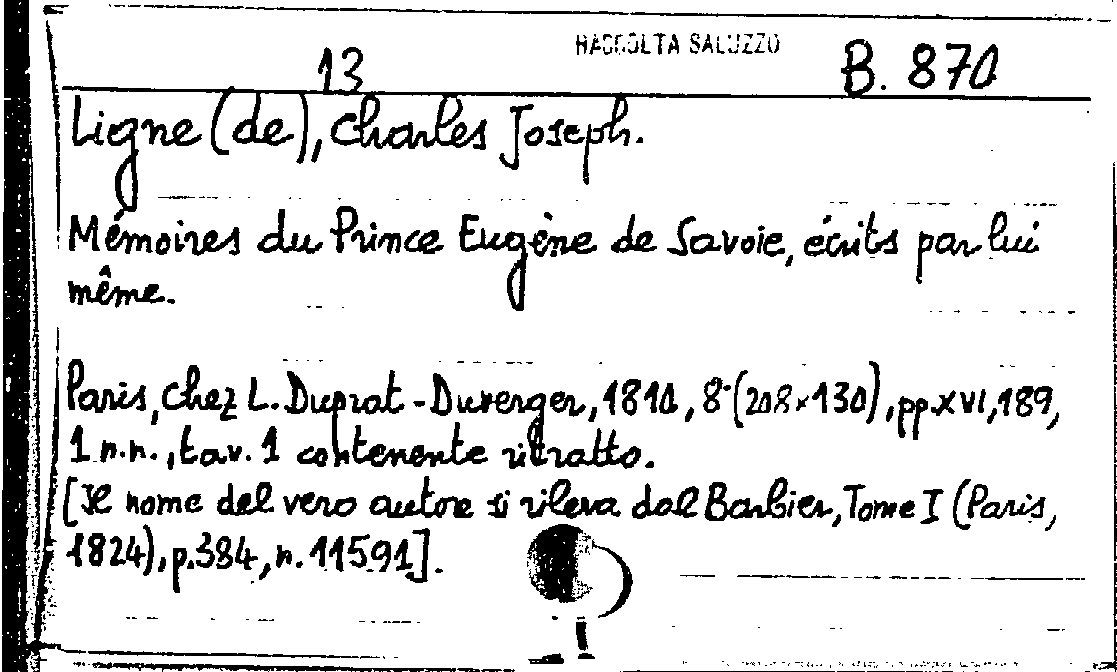 RACCOLTA SALUZZO
13 B. 870
Ligne (de), Charles Joseph.
Mémoires du Prince Eugène de Savoie, écrits par lui
même.
Paris, chez L. Duprat-Duverger, 1810, 8° (208×130), pp. XVI, 189,
1 n.n., tav. 1 contenente ritratto.
[Il nome del vero autore si rileva dal Barbier, Tome I (Paris,
1824), p. 384, n. 11591].